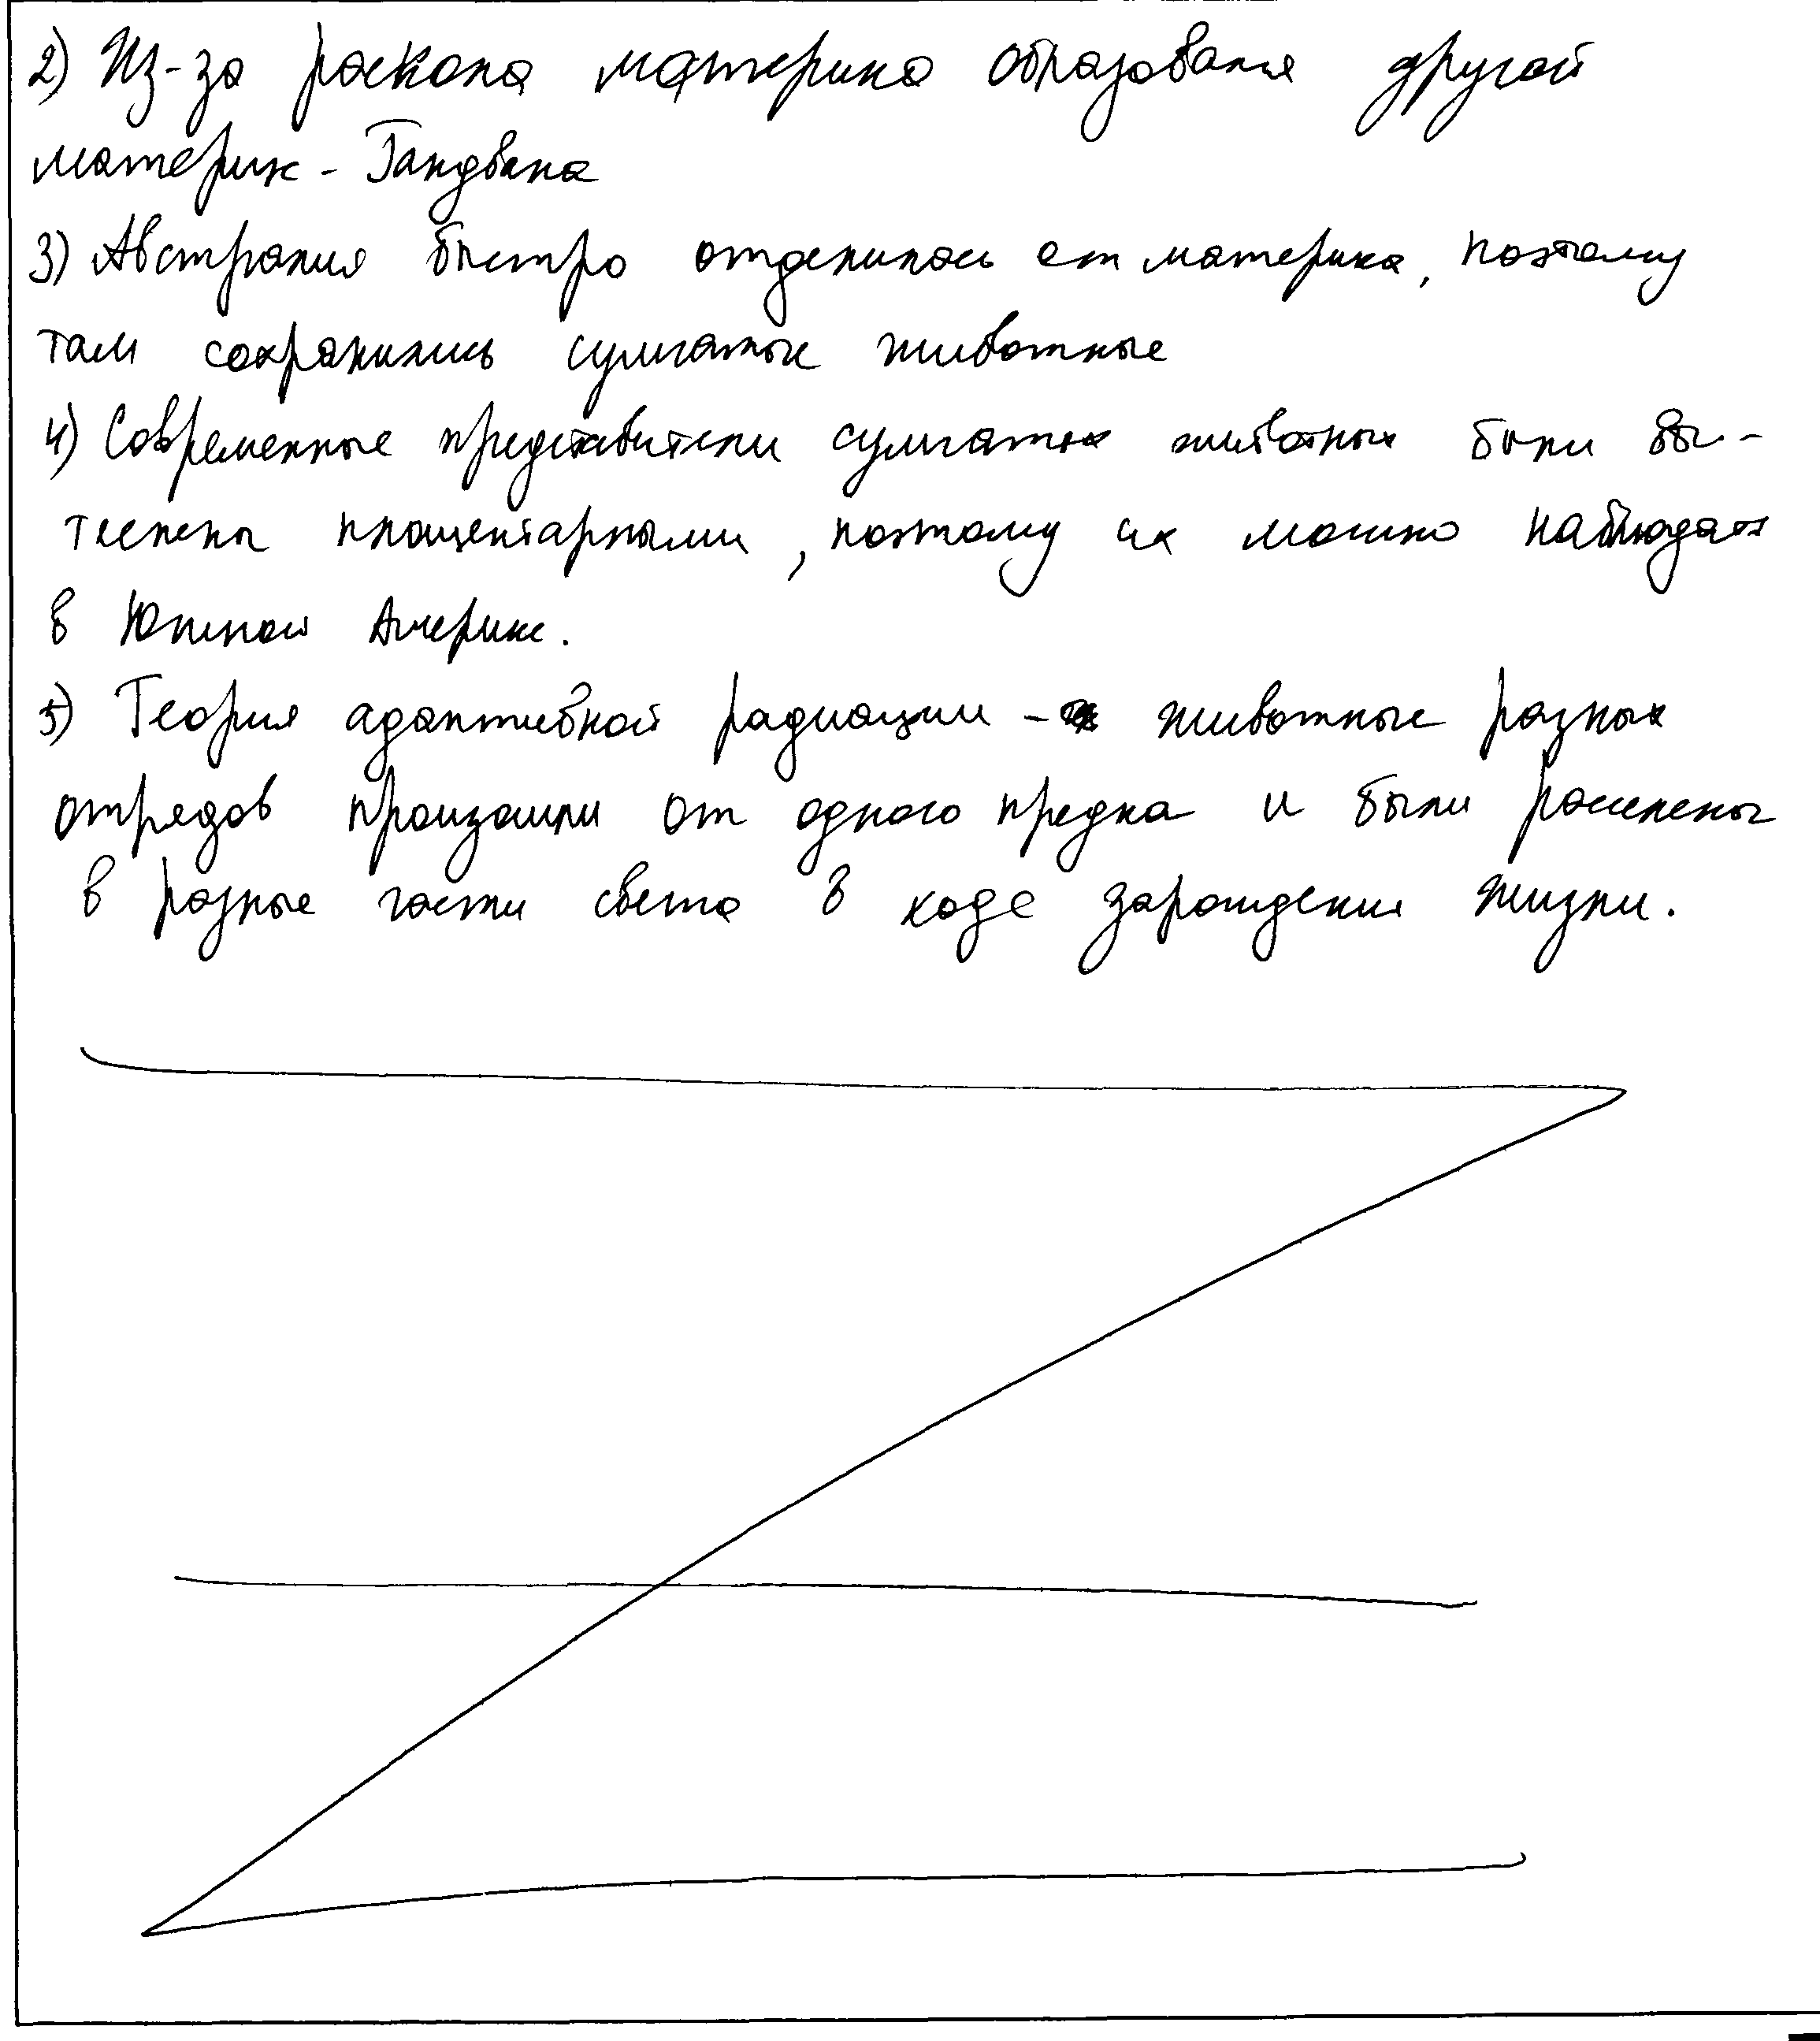 2) Из-за раскола материка образовался другой
материк - Гандвана
3) Австралия быстро отделилась от материка, поэтому
там сохранились сумчатые животные
4) Современные представители сумчатых животных были вы-
теснены плацентарными, поэтому их можно наблюдать
в Южной Америке.
5) Теория адаптивной радиации - животные разных
отрядов произошли от одного предка и были расселены
в разные части света в ходе зарождения жизни.